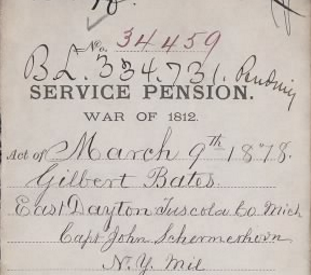 No. 34459
B.L. 334.731. Pending
SERVICE PENSION.
WAR OF 1812.
Act of March 9th 1878.
Gilbert Bates.
East Dayton Tuscola Co. Mich
Capt John Schermerhorn
N.Y. Mil